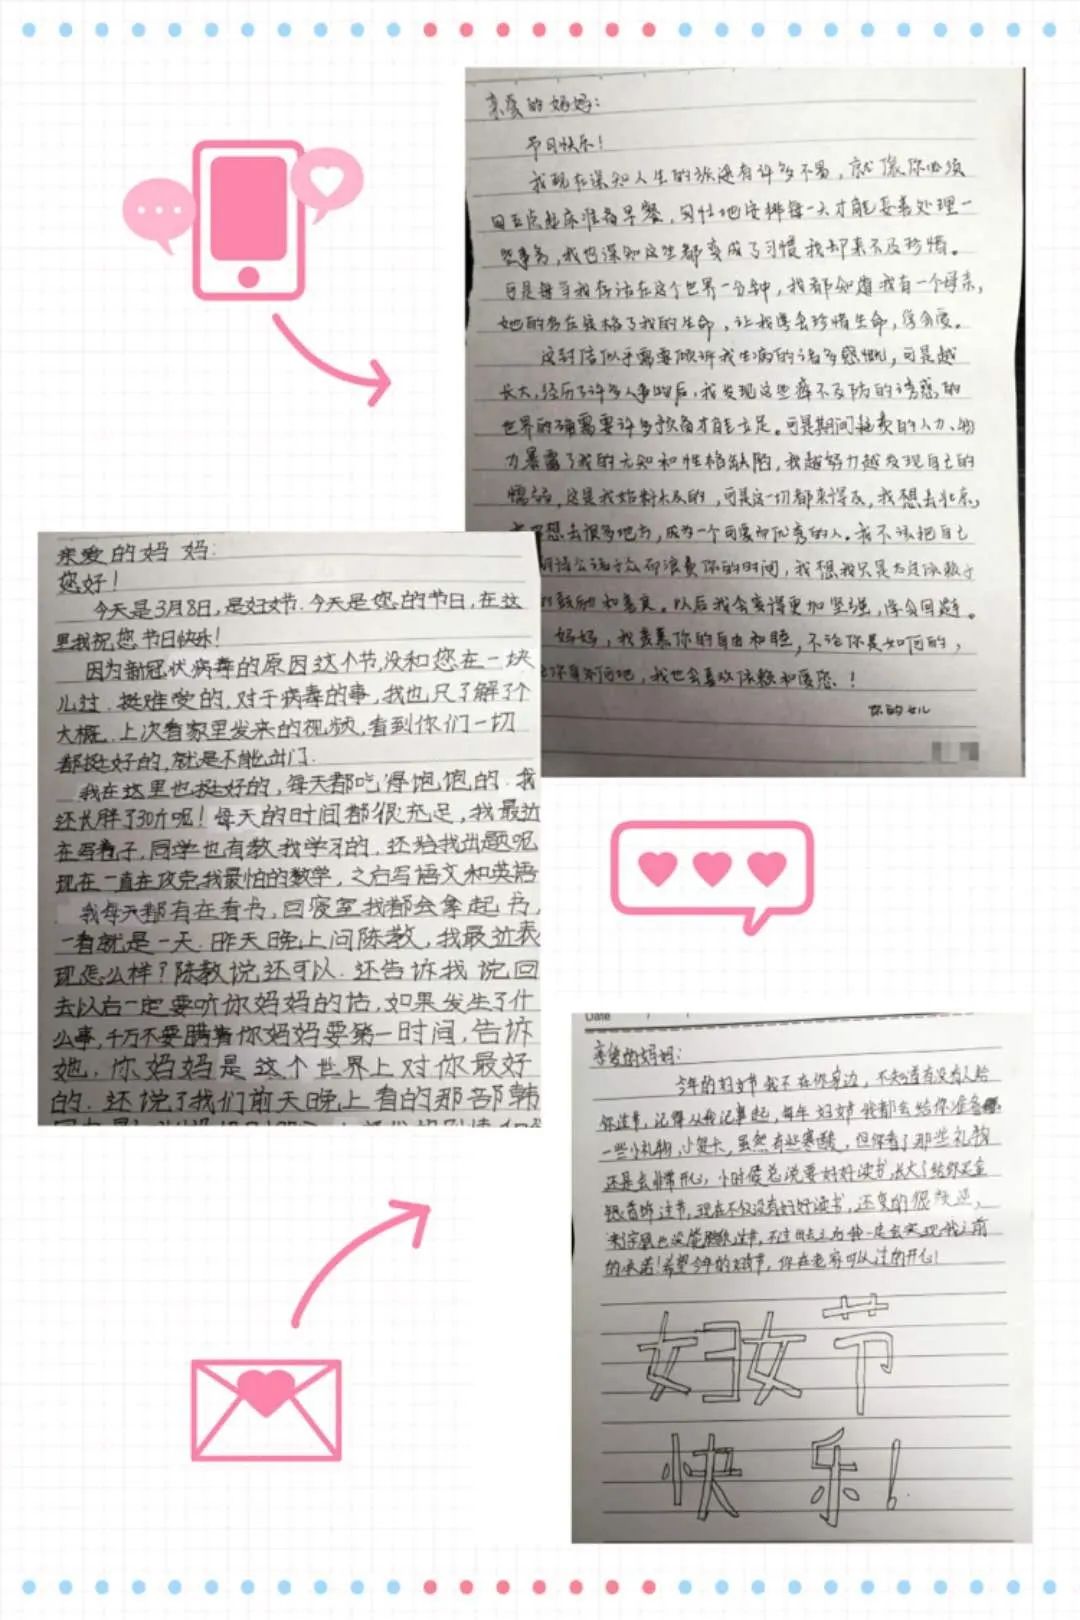 亲爱的妈妈:
节日快乐!
我现在深知人生的旅途有许多不易,就像你必须
四五点起床准备早餐,匆忙地安排每一天才能妥善处理一
些事务,我也深知这些都变成了习惯我却来不及珍惜。
可是每当我存活在这个世界一分钟,我都知道我有一个母亲,
她的存在 了我的生命,让我学会珍惜生命,学会爱。
这封信似乎需要倾诉我生病的诸多感慨,可是越
长大,经历了许多人事 后,我发现这些 不及防的诱惑的
世界的确需要许多 才能立足。可是期间耗费的人力、物
力暴露了我的无知和性格缺陷,我越努力越发现自己的
懦弱,这是我始料未及的,可是这一切都来得及,我想去北京,
想去很多地方,成为一个可爱而优秀的人。我不该把自己
公诸于众而浪费你的时间,我想我只是太过依赖于
鼓励和善良。以后我会变得更加坚强,学会回避。
妈妈,我羡慕你的自由和 ,不论你是如何的,
你身在何地,我也会喜欢依赖和爱您!
你的女儿
亲爱的妈妈:
您好!
今天是3月8日,是妇女节.今天是您的节日,在这
里我祝您节日快乐!
因为新冠状病毒的原因这个节,没和您在一块
儿过.挺难受的,对于病毒的事,我也只了解了个
大概.上次看家里发来的视频,看到你们一切
都挺好的,就是不能出门.
我在这里也挺好的,每天都吃得饱饱的.我
还长胖了30斤呢!每天的时间都很充足,我最近
在写卷子,同学也有教我学习的,还给我出题呢
现在一直在攻克我最怕的数学,之后写语文和英语
我每天都有在看书,回寝室我都会拿起书,
一看就是一天.昨天晚上问陈教,我最近表
现怎么样?陈教说还可以.还告诉我说回
去以后一定要听你妈妈的话,如果发生了什
么事,千万不要瞒着你妈妈要第一时间,告诉
她.你妈妈是这个世界上对你最好
的.还说了我们前天晚上看的那部韩
Date
亲爱的妈妈:
今年的妇女节我不在你身边,不知道有没有人给
你过节,记得从我记事起,每年妇女节我都会给你准备
一些小礼物,小贺卡,虽然有些寒酸,但你看了那些礼物
还是会非常开心,小时候总说要好好读书,长大了给你买金
银首饰过节,现在不仅没有好好读书,还变的很叛逆,
连过节,不过出去之后我一定会实现我之前
的承诺!希望今年的妇女节,你在老家可以过的开心!
妇女节
快乐!